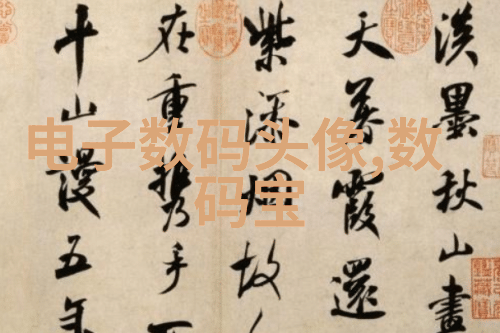 电子数码头像,数
码宝
淡墨秋山畫
天暮霞還
紫添烟故
在重攜手
平山謾五年